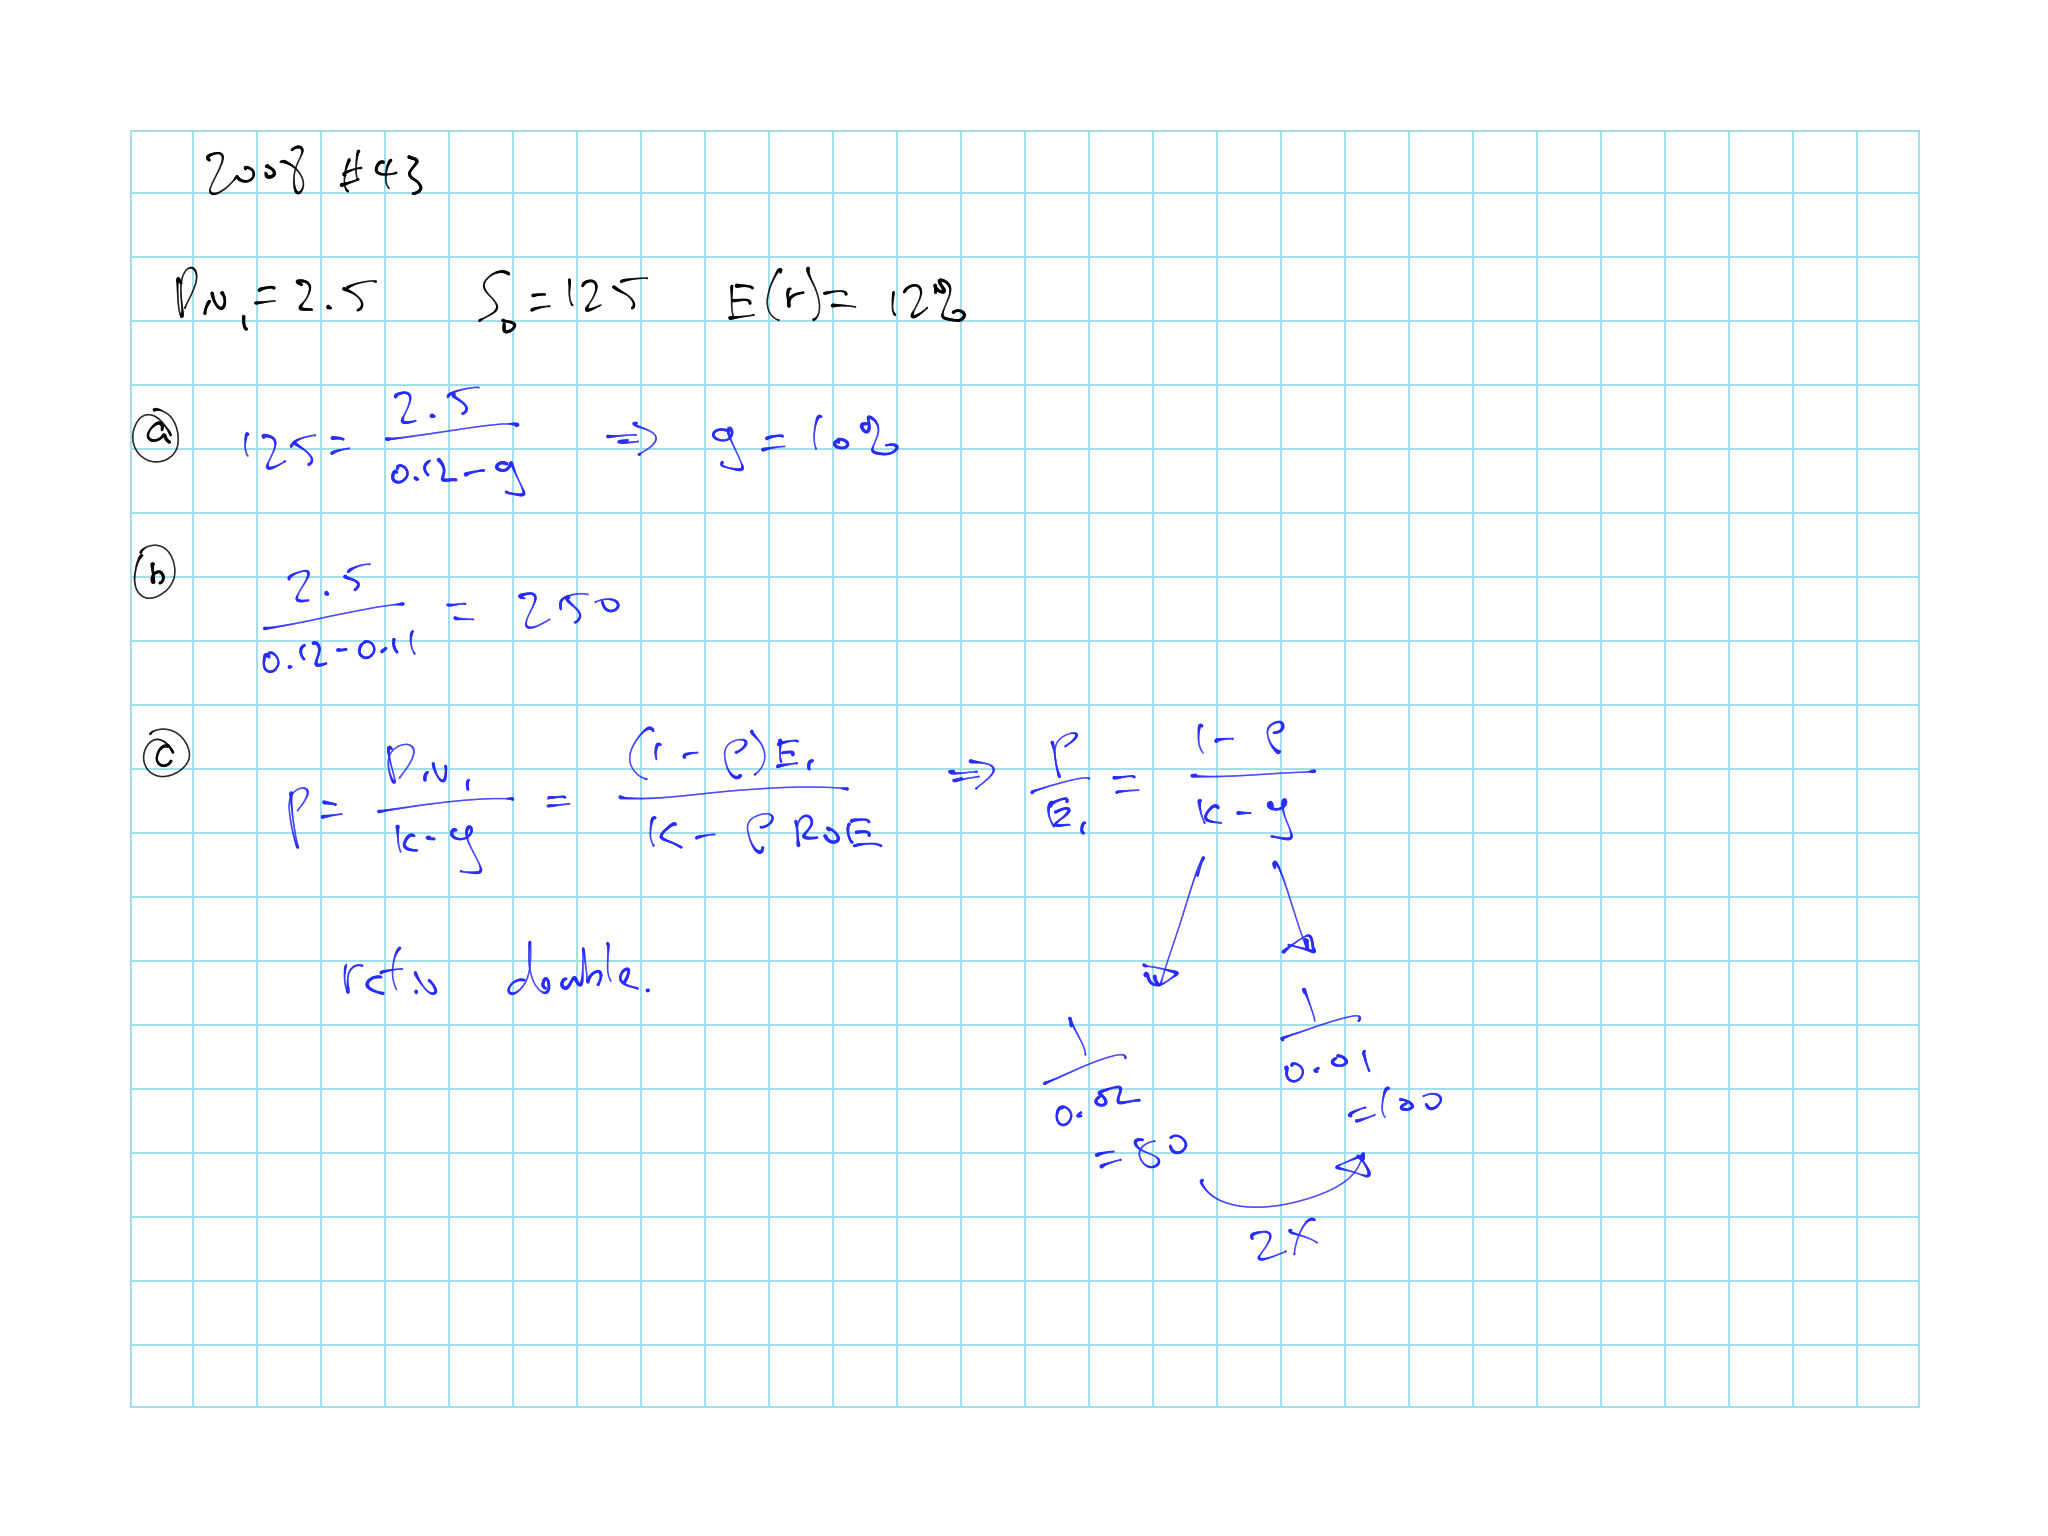 2008 #43
Div₁ = 2.5 S₀ = 125 E(r) = 12%
ⓐ 125 = 2.5 / (0.12 - g) ⇒ g = 10%
ⓑ 2.5 / (0.12 - 0.11) = 250
ⓒ P = Div₁ / (k - g) = (1 - ρ)E₁ / (k - ρ ROE) ⇒ P / E₁ = (1 - ρ) / (k - g)
ratio double.
1 / 0.02 = 80
1 / 0.01 = 100
2x